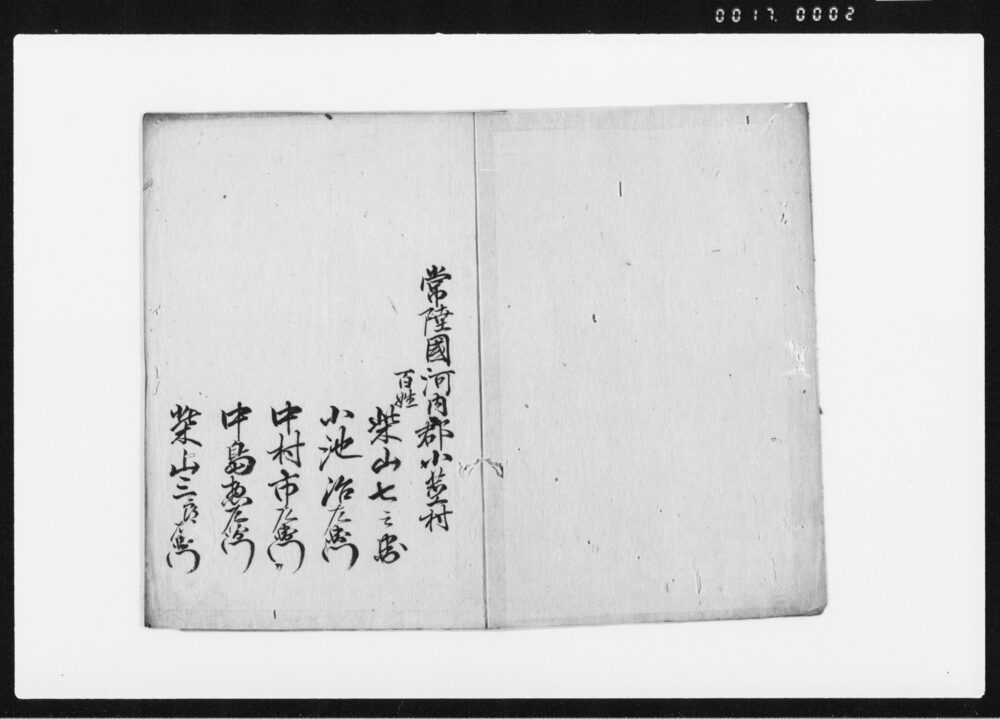 0017. 0002
常陸國河内郡小茎村
百姓
柴山七之助
小池治左衛門
中村市左衛門
中島惣左衛門
柴山三郎左衛門